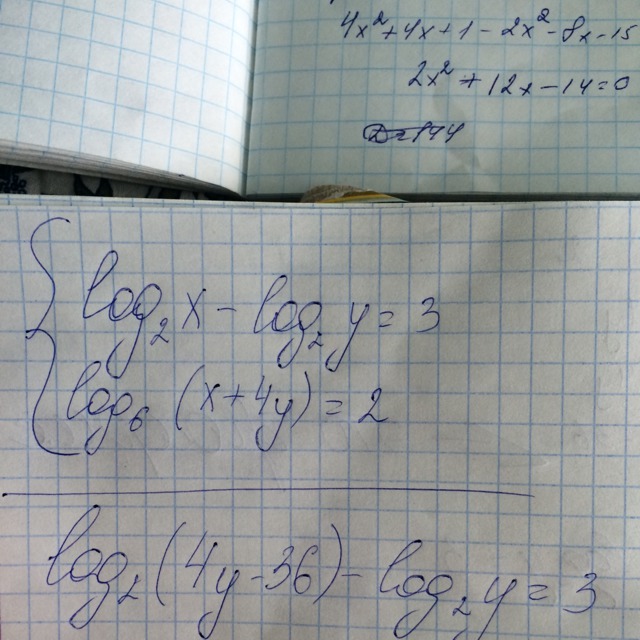 4x²+4x+1-2x²-8x-15
2x²+12x-14=0
D=144
log₂x-log₂y=3
log₆(x+4y)=2
log₂(4y-36)-log₂y=3